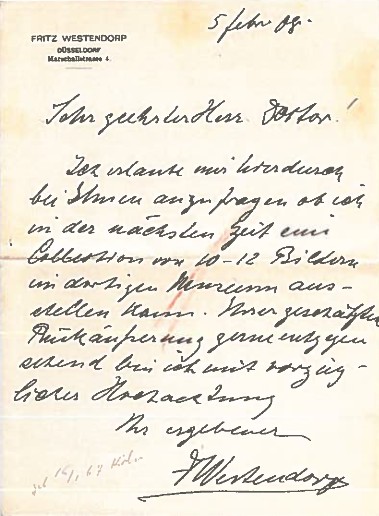 FRITZ WESTENDORP
DÜSSELDORF
Marschallstrasse 4.
5 febr 09.
Sehr geehrter Herr Doktor!
Ich erlaube mir hierdurch
bei Ihnen anzufragen ob ich
in der nächsten Zeit eine
Collection von 10-12 Bildern
im dortigen Museum aus-
stellen kann. Ihrer geschätzten
Rückäußerung gerne entgegen
sehend bin ich mit vorzüg-
licher Hochachtung
Ihr ergebener
FWestendorp
67 Köln